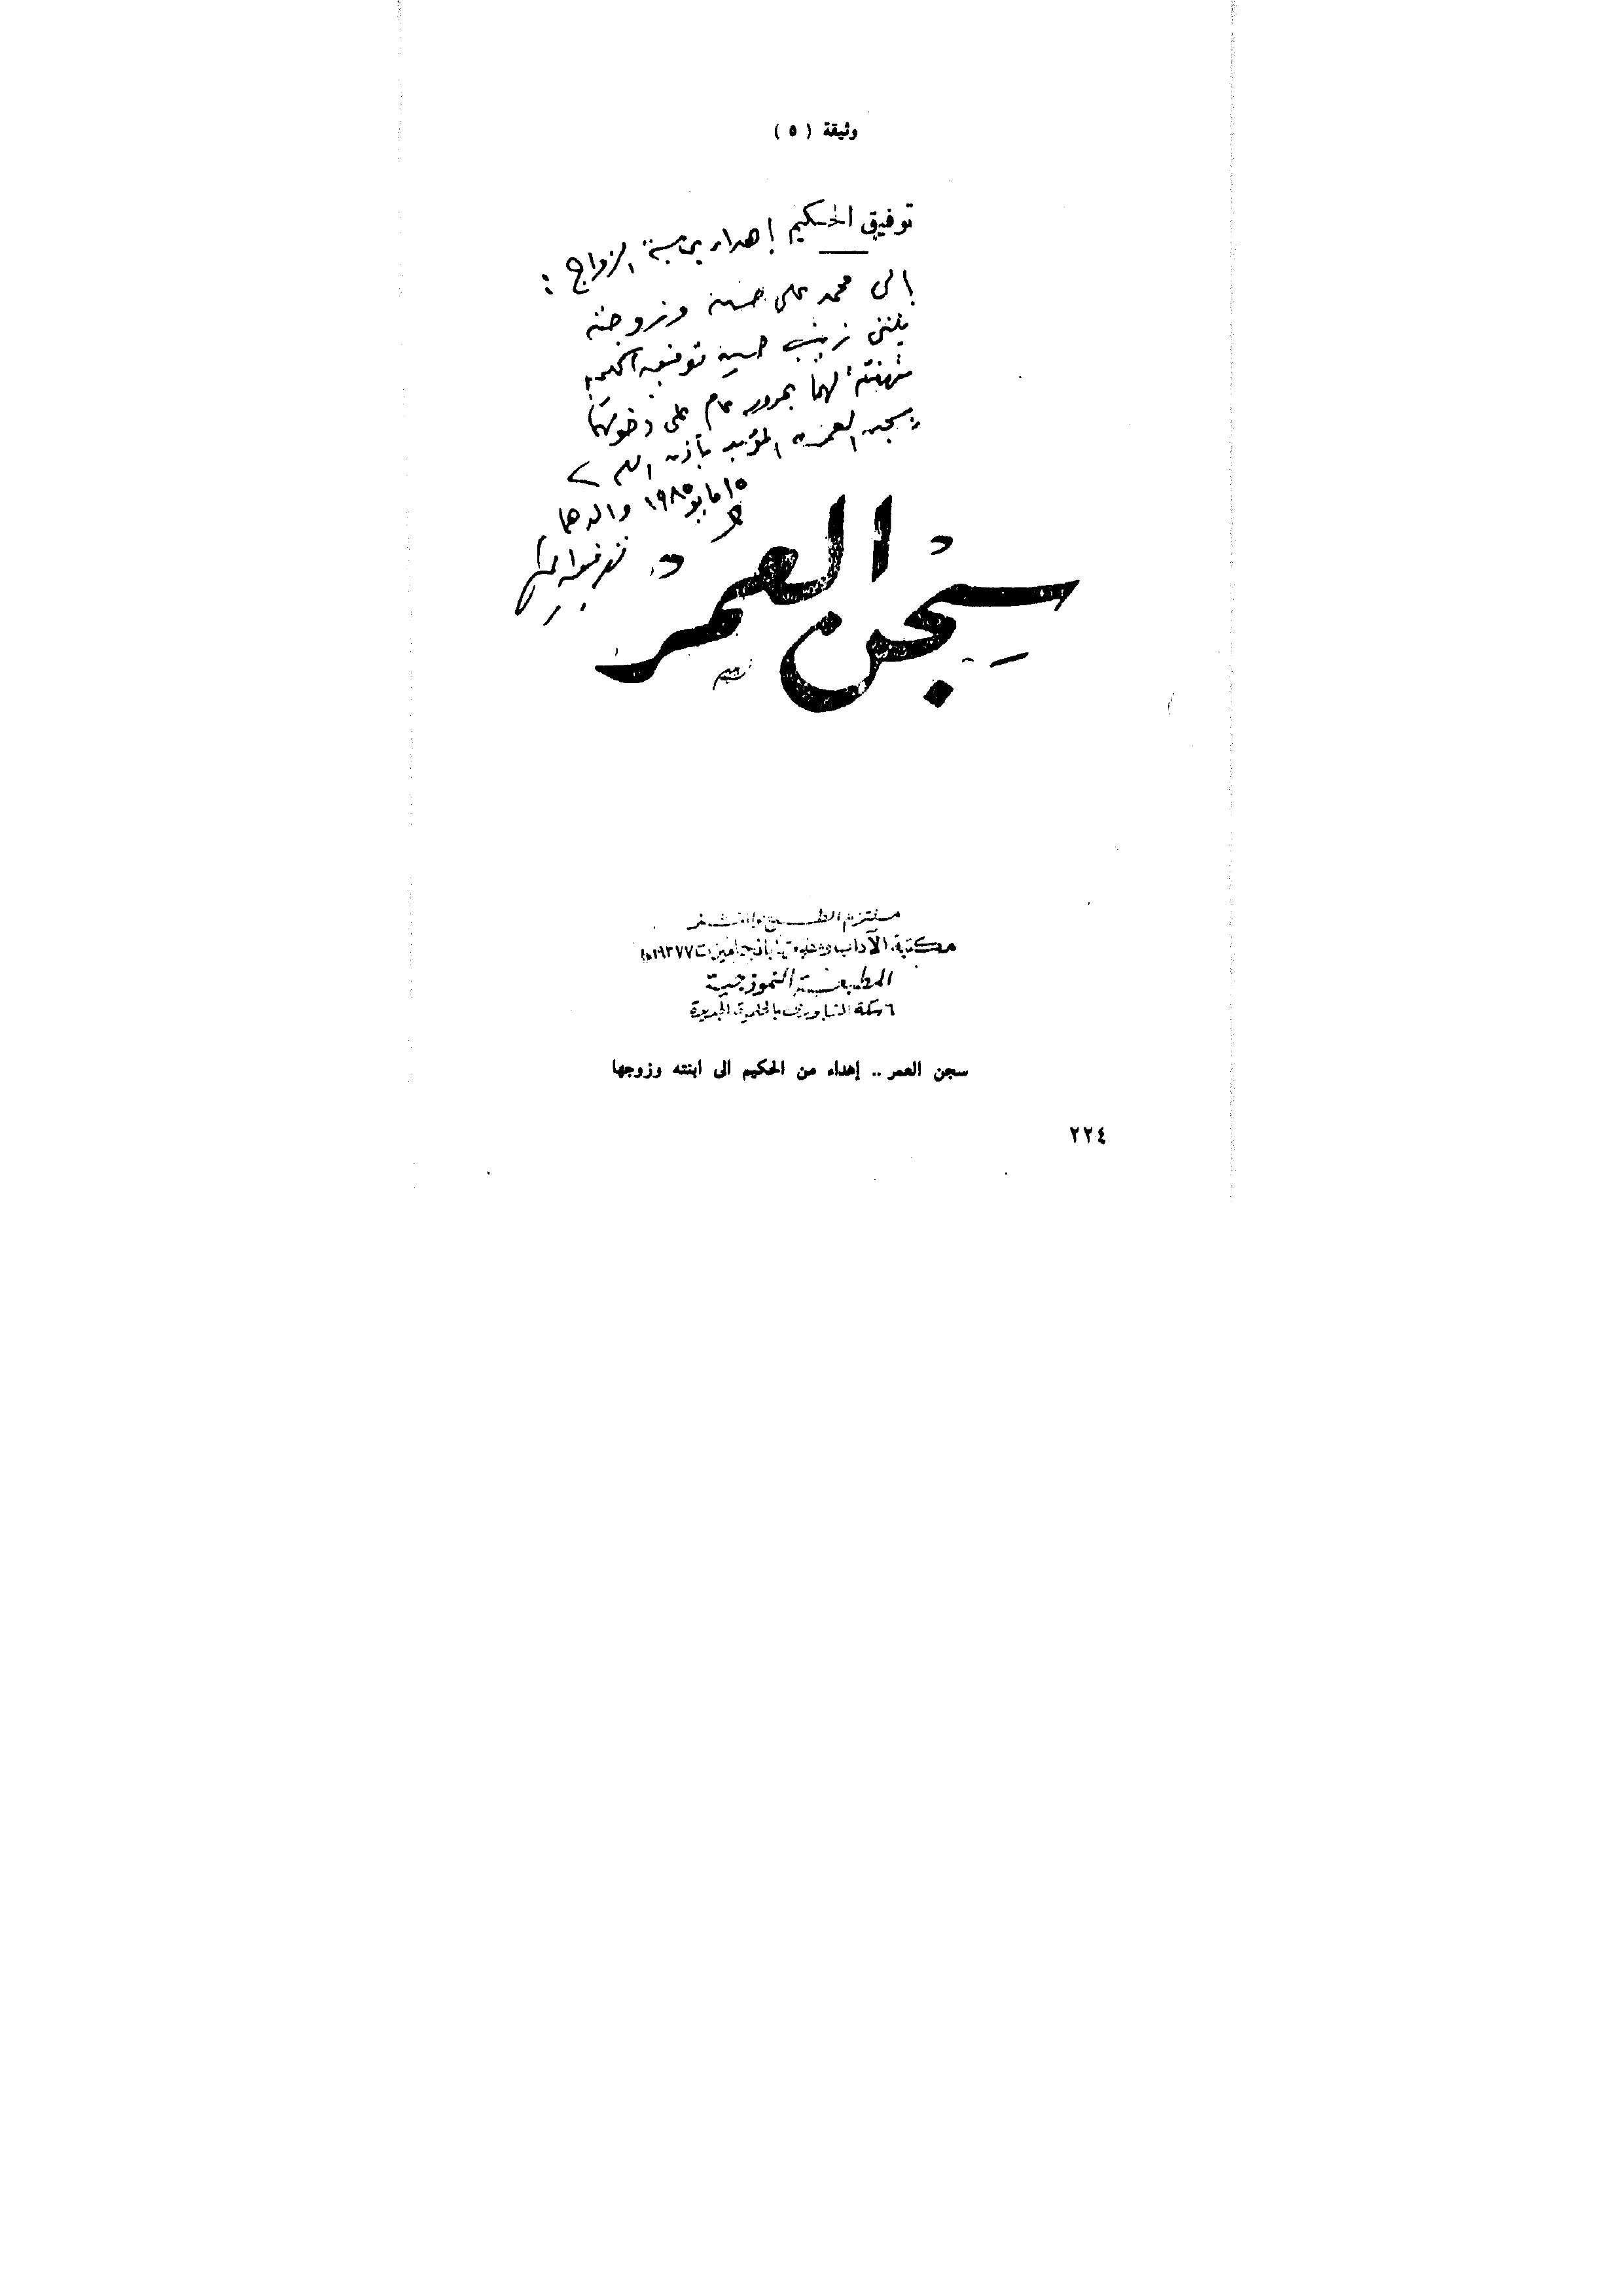 وثيقة ( ٥ )
توفيق الحكيم إهداء بمناسبة الزواج :
إلى محمد على حسين وزوجته
زينب حسين توفيق الحكيم
تهنئة لهما بمرور عام على دخولهما
سجن العمر المؤبد بإذن الله
١٥ مايو ١٩٨٥ والدهما
توفيق الحكيم
سجن العمر
ملتزم الطبع والنشر
مكتبة الآداب
المطبعة النموذجية
٦ سكة الشابورى بالحلمية الجديدة
سجن العمر .. إهداء من الحكيم الى ابنته وزوجها
٢٢٤